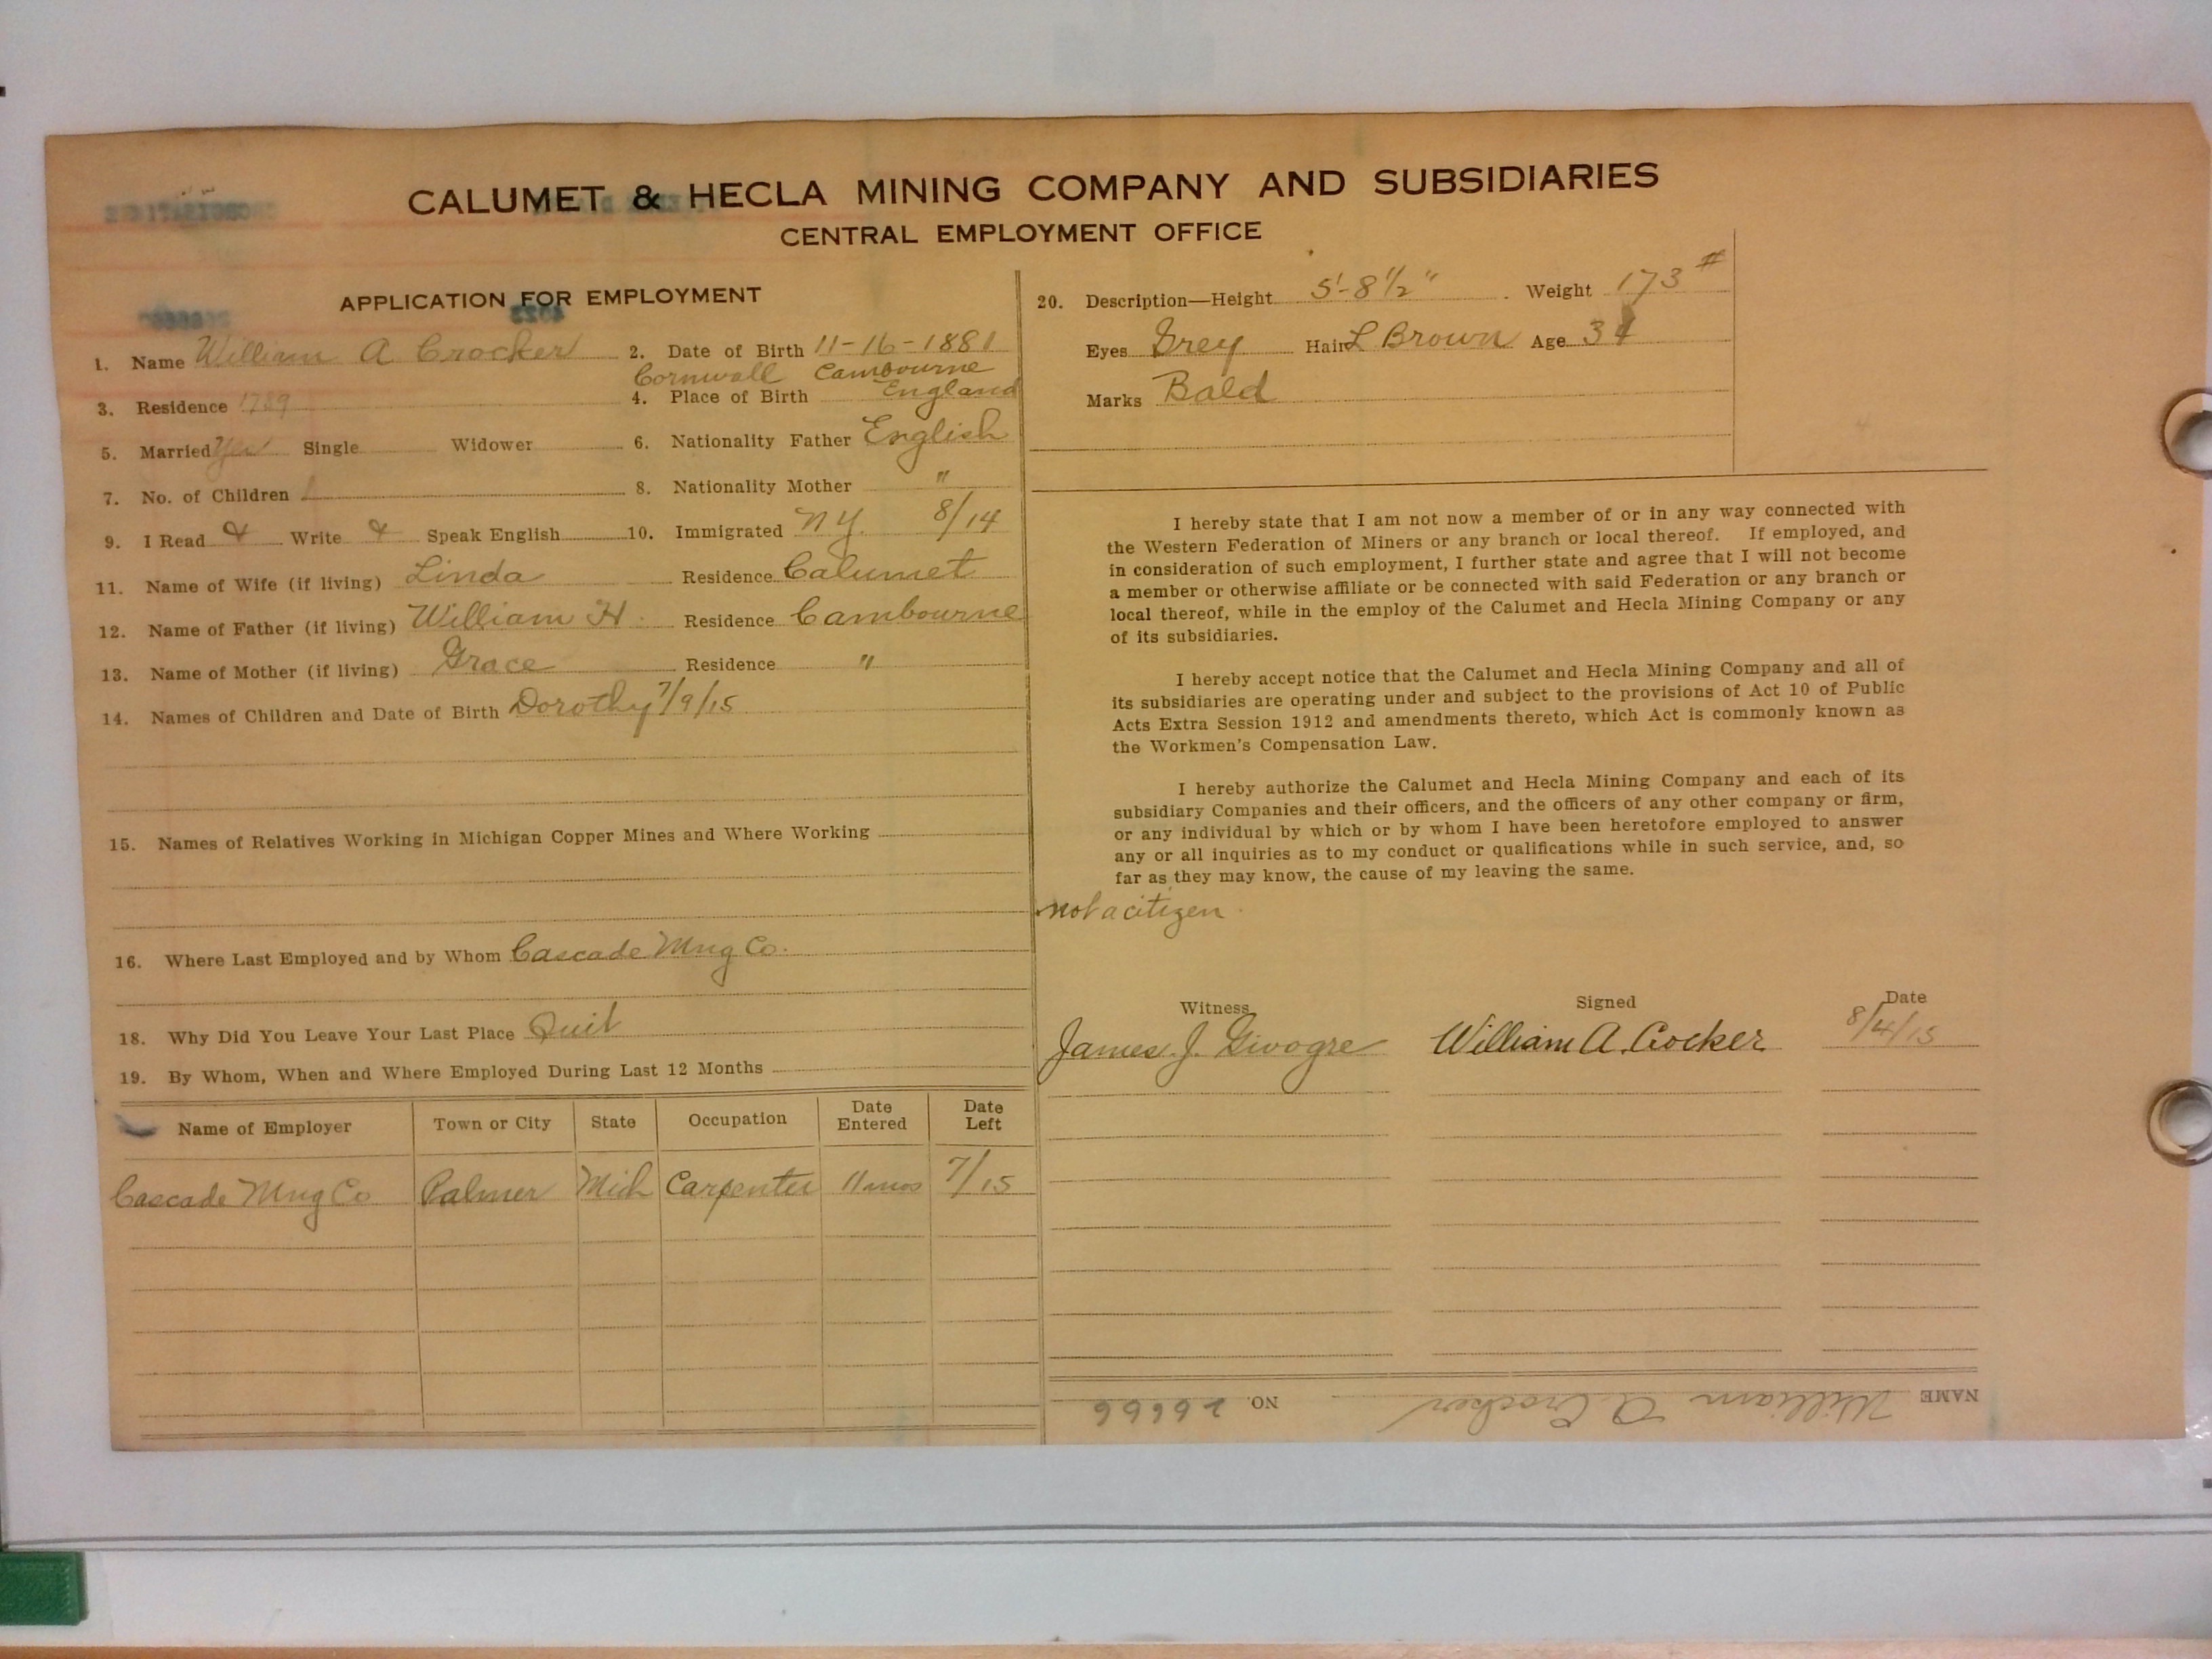 CALUMET & HECLA MINING COMPANY AND SUBSIDIARIES
CENTRAL EMPLOYMENT OFFICE
APPLICATION FOR EMPLOYMENT
1. Name William A Crocker 2. Date of Birth 11-16-1881
Cornwall Cambourne
3. Residence 1789 4. Place of Birth England
5. Married Yes Single Widower 6. Nationality Father English
7. No. of Children 1 8. Nationality Mother "
9. I Read & Write & Speak English 10. Immigrated N.Y. 8/14
11. Name of Wife (if living) Linda Residence Calumet
12. Name of Father (if living) William H. Residence Cambourne
13. Name of Mother (if living) Grace Residence "
14. Names of Children and Date of Birth Dorothy 7/9/15
15. Names of Relatives Working in Michigan Copper Mines and Where Working
16. Where Last Employed and by Whom Cascade Mng Co.
18. Why Did You Leave Your Last Place Quit
19. By Whom, When and Where Employed During Last 12 Months
Name of Employer Town or City State Occupation Date Entered Date Left
Cascade Mng Co Palmer Mich Carpenter 11 mos 7/15
20. Description—Height 5'-8½" Weight 173 #
Eyes Grey Hair L Brown Age 34
Marks Bald
I hereby state that I am not now a member of or in any way connected with
the Western Federation of Miners or any branch or local thereof. If employed, and
in consideration of such employment, I further state and agree that I will not become
a member or otherwise affiliate or be connected with said Federation or any branch or
local thereof, while in the employ of the Calumet and Hecla Mining Company or any
of its subsidiaries.
I hereby accept notice that the Calumet and Hecla Mining Company and all of
its subsidiaries are operating under and subject to the provisions of Act 10 of Public
Acts Extra Session 1912 and amendments thereto, which Act is commonly known as
the Workmen's Compensation Law.
I hereby authorize the Calumet and Hecla Mining Company and each of its
subsidiary Companies and their officers, and the officers of any other company or firm,
or any individual by which or by whom I have been heretofore employed to answer
any or all inquiries as to my conduct or qualifications while in such service, and, so
far as they may know, the cause of my leaving the same.
not a citizen
Witness Signed Date
James J. Givogre William A. Crocker 8/4/15
NAME William A Crocker NO. 26666